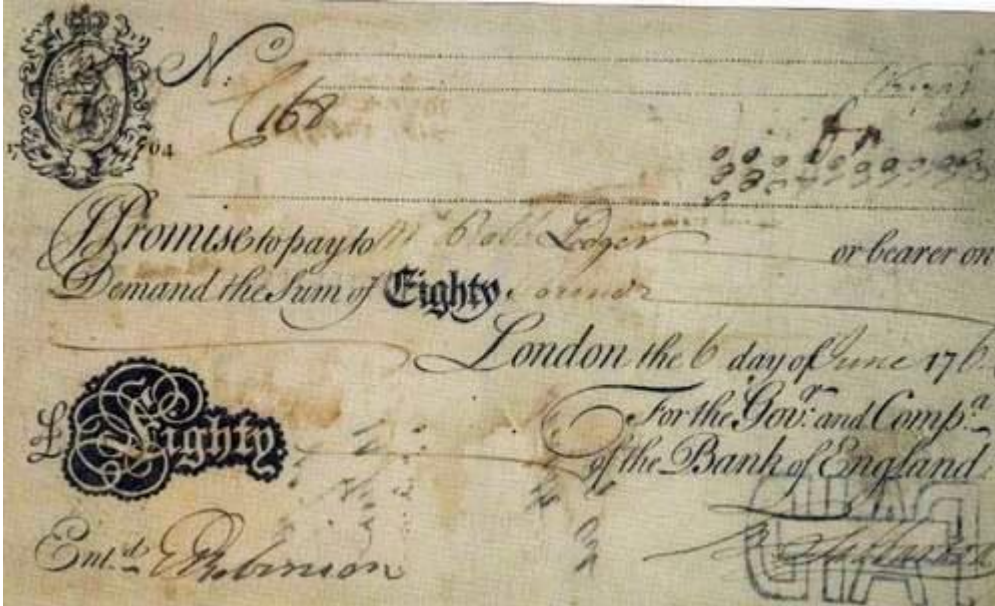 No
168
17 64
I Promise to pay to Mr Robt Lodger or bearer on
Demand the Sum of Eighty Pounds
London the 6 day of June 176
For the Govr. and Compa.
of the Bank of England
£ Eighty
Entd. Robinson